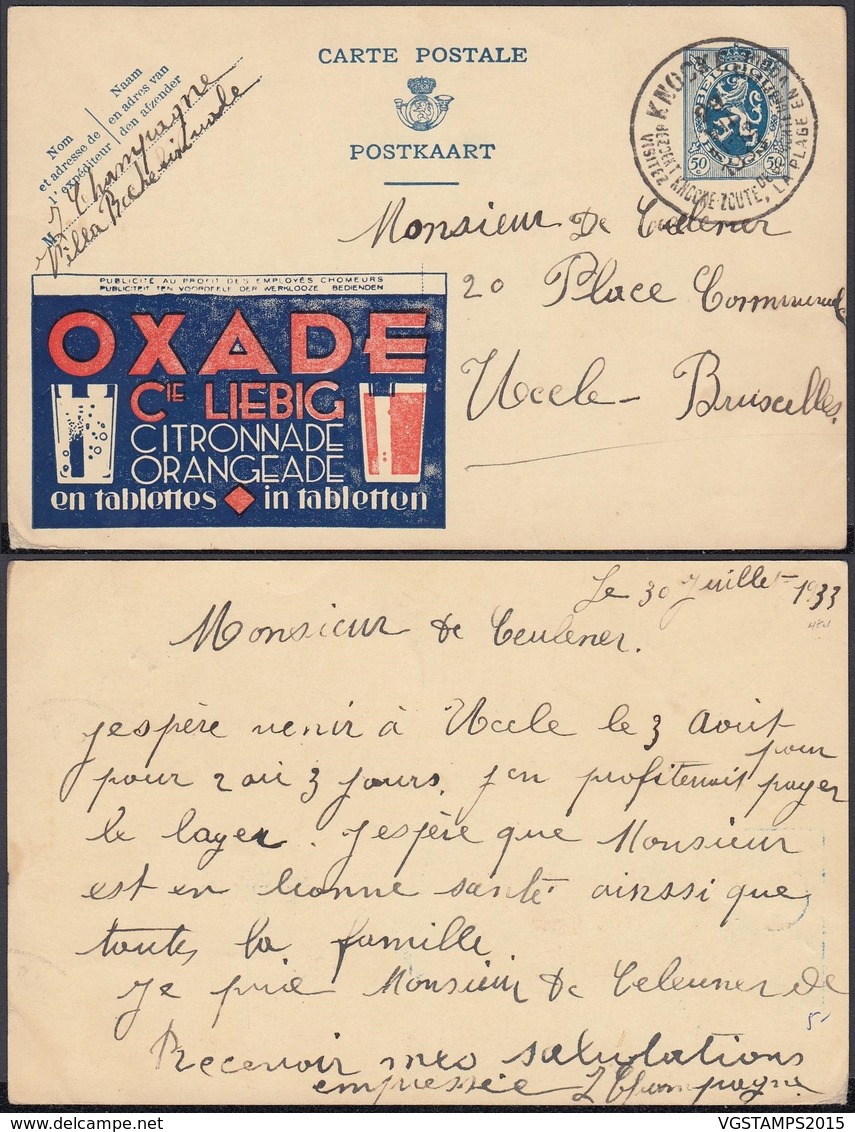 CARTE POSTALE
POSTKAART
Nom
et adresse de
l'expéditeur
Naam
en adres van
den afzender
M
J Champagne
Villa
KNOCKE
VISITEZ
BEZOEKT KNOCKE-ZOUTE, LA PLAGE EN VOGUE
BELGIQUE
BELGIE
50 50
Monsieur De Ceulener
20 Place Communale
Uccle - Bruxelles.
PUBLICITE AU PROFIT DES EMPLOYÉS CHOMEURS
PUBLICITEIT TEN VOORDEELE DER WERKLOOZE BEDIENDEN
OXADE
CIE LIEBIG
CITRONNADE
ORANGEADE
en tablettes in tabletten
Le 30 Juillet 1933
484
Monsieur de Ceulener.
j'espère venir à Uccle le 3 Août
pour 2 ou 3 jours. j'en profiterait pour payer
le layer. J'espère que Monsieur
est en bonne santé ainssi que
toutes la famille
Je prie Monsieur De Celeuner de
5-
Recevoir mes salutations
empressée J Champagne
VGSTAMPS2015